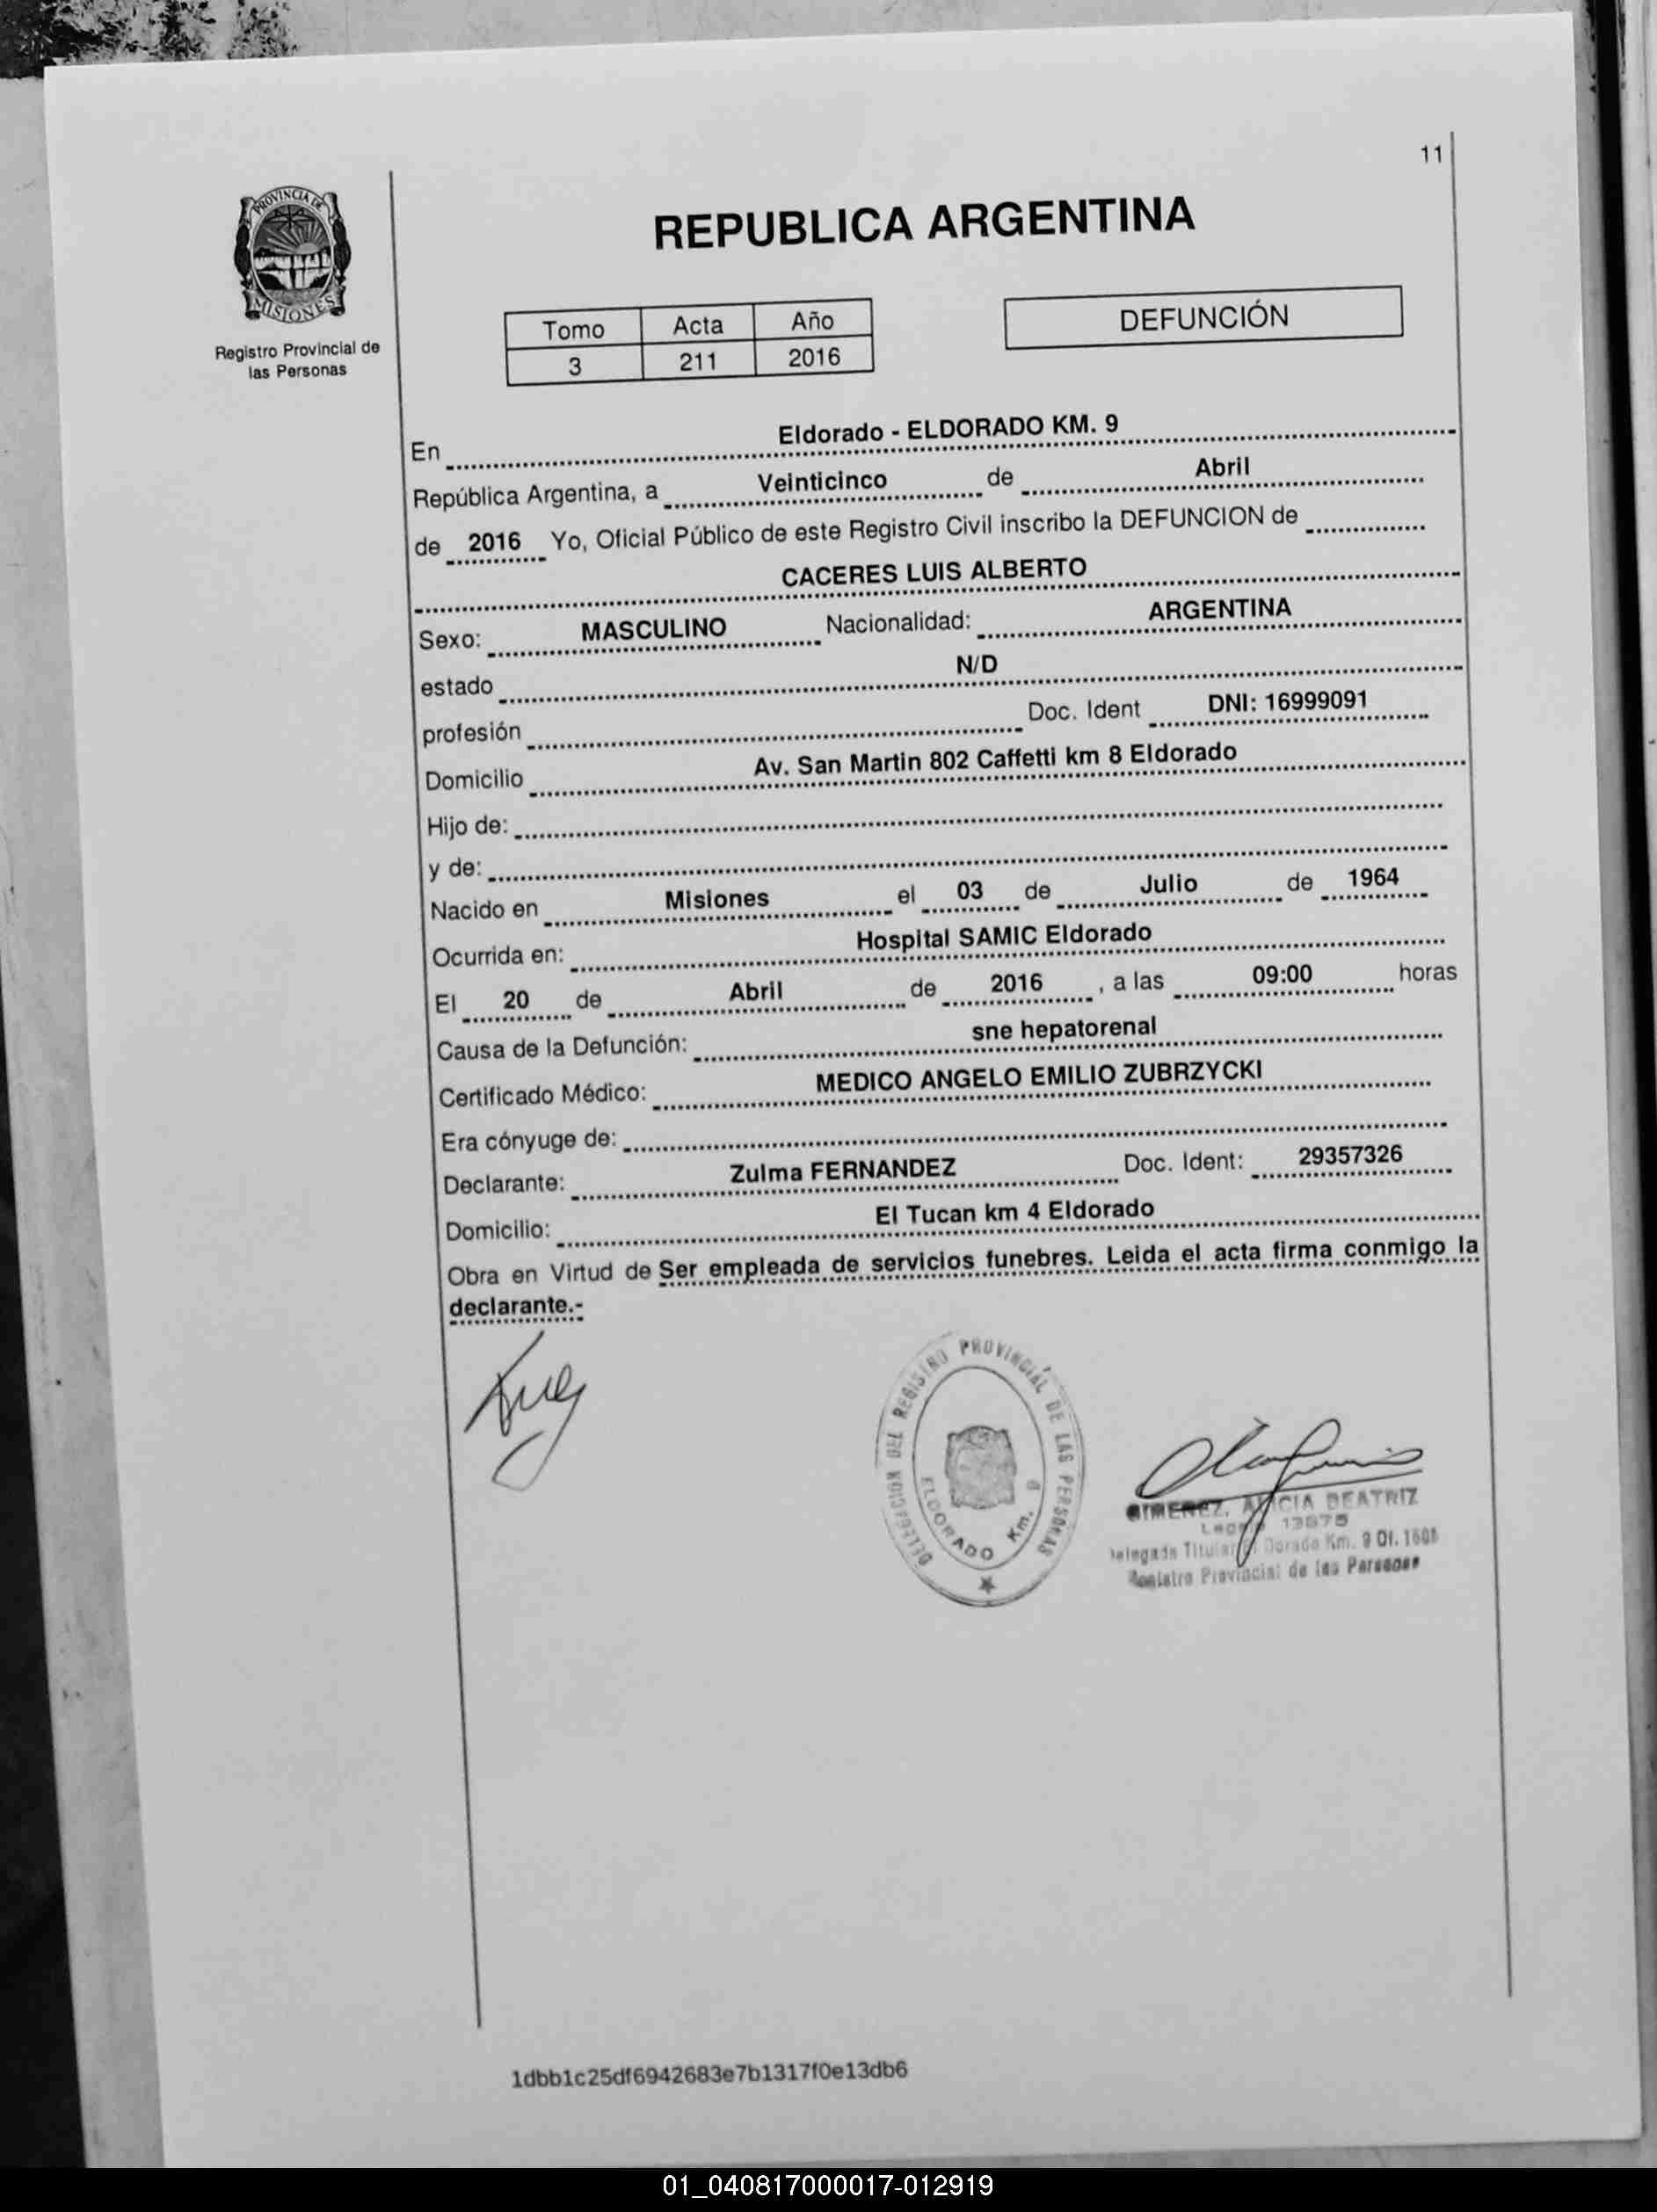 11
PROVINCIA DE
MISIONES
Registro Provincial de
las Personas
REPUBLICA ARGENTINA
Tomo Acta Año
3 211 2016
DEFUNCIÓN
En Eldorado - ELDORADO KM. 9
República Argentina, a Veinticinco de Abril
de 2016 Yo, Oficial Público de este Registro Civil inscribo la DEFUNCION de
CACERES LUIS ALBERTO
Sexo: MASCULINO Nacionalidad: ARGENTINA
estado N/D
profesión Doc. Ident DNI: 16999091
Domicilio Av. San Martin 802 Caffetti km 8 Eldorado
Hijo de:
y de:
Nacido en Misiones el 03 de Julio de 1964
Ocurrida en: Hospital SAMIC Eldorado
El 20 de Abril de 2016 , a las 09:00 horas
Causa de la Defunción: sne hepatorenal
Certificado Médico: MEDICO ANGELO EMILIO ZUBRZYCKI
Era cónyuge de:
Declarante: Zulma FERNANDEZ Doc. Ident: 29357326
Domicilio: El Tucan km 4 Eldorado
Obra en Virtud de Ser empleada de servicios funebres. Leida el acta firma conmigo la
declarante.-
DELEGACION DEL REGISTRO PROVINCIAL DE LAS PERSONAS
ELDORADO Km. 9
GIMENEZ, ALICIA BEATRIZ
Legajo 13875
Delegada Titular El Dorado Km. 9 Of. 1608
Registro Provincial de las Personas
1dbb1c25df6942683e7b1317f0e13db6
01_040817000017-012919